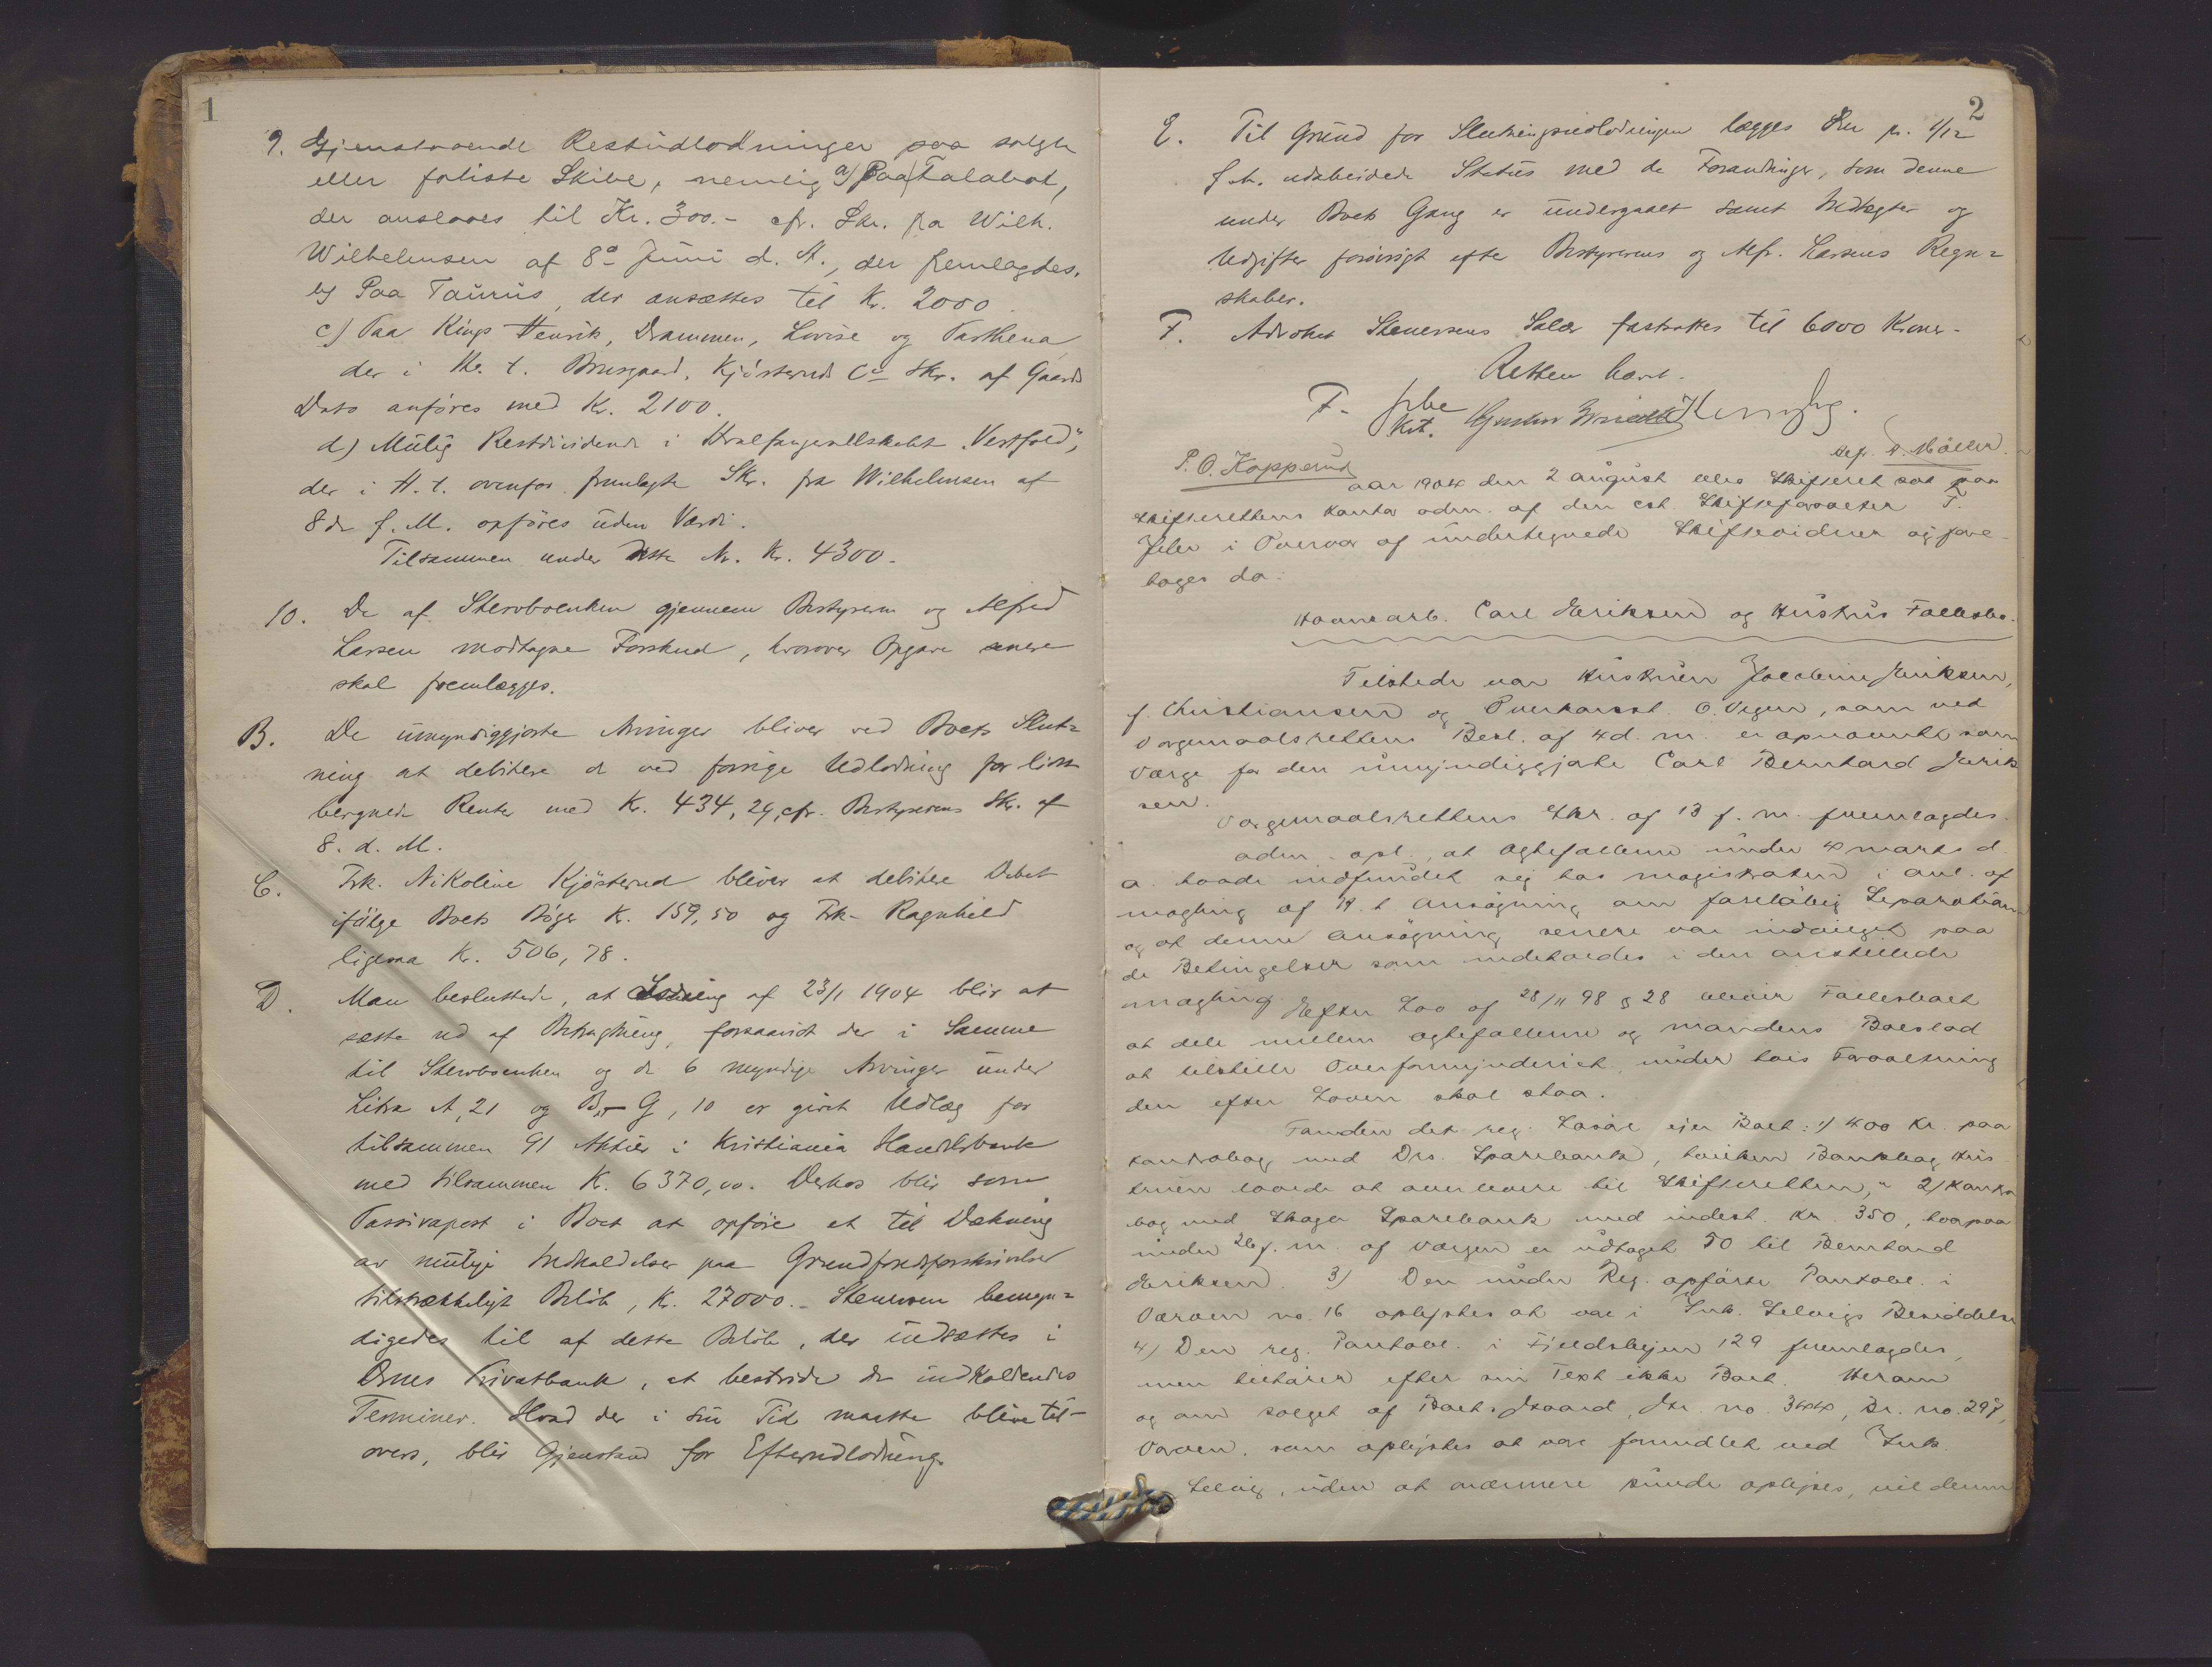 1
9. Gjenstaaende Restudlodninger paa solgte
eller forliste Skibe, nemlig a) Paa Talabot,
der ansloges til Kr. 300.- cfr. Skr. fra Wilh.
Wilhelmsen af 8de Juni d. A., der fremlagdes.
b) Paa Taurus, der ansættes til Kr. 2000.
c) Paa Kings Henrik, Drammen, Lovise og Parthena
der i Hr. t. Brusgaard, Kjøsterud Co Skr. af Gaards
Dato anføres med Kr. 2100.
d) Mulig Restdividende i Hvalfangerselskabet "Vestfold",
der i H. t. ovenfor fremlagte Skr. fra Wilhelmsen af
8de f. M. opføres uden Værdi.
Tilsammen under dette Nr. Kr. 4300.-
10. De af Stervboenken gjennem Bestyreren og Alfred
Larsen modtagne Forskud, hvorover Opgave senere
skal fremlægges.
B. De umyndiggjorte Arvinger bliver ved Boets Slut=
ning at debitere de ved forrige Udlodning for lidet
beregnede Renter med Kr. 434,29, cfr. Bestyrerens Skr. af
8. d. M.
C. Frk. Nikoline Kjøsterud bliver at debitere Debet
ifølge Boets Bøger Kr. 159,50 og Frk. Ragnhild
ligesaa Kr. 506,78.
D. Man besluttede, at Lodning af 23/1 1904 blir at
sætte ud af Betragtning, forsaavidt der i Samme
til Stervboenken og de 6 myndige Arvinger under
Litra A, 21 og B - G, 10 er givet Udlæg for
tilsammen 91 Aktier i Kristiania Handelsbank
med tilsammen Kr. 6370,00. Derhos blir som
Passivapost i Boet at opføre et til Dækning
av mulige Indkaldelser paa Grundfondsforskrivelser
tilstrækkeligt Beløb, Kr. 27000.- Stenersen bemyn=
digedes til af dette Beløb, der indsættes i
Drmns Privatbank, at bestride de indkaldendes
Terminer. Hvad der i sin Tid maatte blive til-
overs, blir Gjenstand for Efterudlodning.
2
E. Til Grund for Slutningsudlodningen lægges den pr. 1/12
f. A. udarbeidede Status med de Forandringer, som denne
under Boets Gang er undergaaet samt Indtægter og
Udgifter forøvrigt efter Bestyrerens og Alfr. Larsens Regn=
skaber.
F. Advokat Stenersens Salær fastsattes til 6000 Kroner.-
Retten hævet.
F. Jebe
Kst.
P. O. Kopperud
Alfr. R. Møller.
Aar 1904 den 2 august blev Skifteret sat paa
Skifterettens Kontor adm. af den cst Skifteforvalter F.
Jebe i Overvær af undertegnede Skiftevidner og fore-
toges da:
Havnearb. Carl Eriksen og Hustrus Fællesbo.
Tilstede var Hustruen Jacobine Eriksen,
f. Christiansen og Overkonst. O. Vegen, som ved
Vergemaalsrettens Besl. af 4 d. m. er opnævnt som
Værge for den umyndiggjorte Carl Bernhard Erik
sen.
Vergemaalsrettens Skr. af 13 f. m. fremlagdes.
adm. opl., at Ægtefællerne under 4 marts d.
a. havde indfundet sig hos magistraten i anl. af
mægling af H. t. Ansøgning om foreløbig Separation
og at denne Ansøgning senere var indvilget paa
de Betingelser som indeholdes i den anstillede
mægling. Efter Lov af 28/11 98 § 28 bliver Fællesboet
at dele mellem Ægtefællerne og mandens Boeslod
at tilstille Overformynderiet, under hvis Forvaltning
den efter Loven skal staa.
Foruden det reg. Løsøre eier Boet: 1) 400 Kr. paa
Kontrabog med Drs. Sparebank, hvilken Bankbog Hus
truen lovede at overlevere til Skifteretten, 2) Kontra
bog med Skoger Sparebank med indest. Kr. 350, hvorpaa
under 26 f. m. af Værgen er udtaget 50 til Bernhard
Eriksen. 3) Den under Reg. opførte Pantobl. i
Vaaren no. 16 oplystes at være i Snk. Selvigs Besiddelse
4) Den reg. Pantobl. i Fjeldsbyen 129 fremlagdes,
men tilhører efter sin Text ikke Boet. Herom
og om Salget af Boets Gaard, Gr. no. 344, Br. no. 297,
Vaaren, som oplystes at være formidlet ved Snk.
Selvig, uden at nærmere kunde oplyses, vil denne